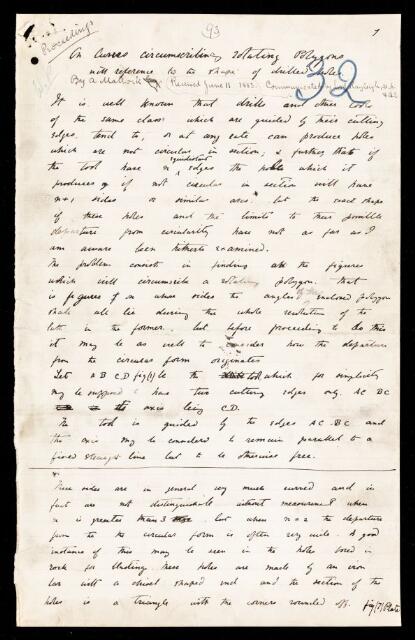 Proceedings
93
1
32
On Curves circumscribing rotating Polygons
with reference to the shape of drilled holes.
By A. Mallock Received June 11 1883. Communicated by Lord Rayleigh,
It is well known that drills and other tools
of the same class which are guided by their cutting
edges, tend to, or at any rate can produce holes
which are not circular in section; & further that if
the tool have n equidistant edges the hole which it
produces if not circular in section will have
n+1 sides or similar arcs. but the exact shape
of these holes and the limits to their possible
departure from circularity have not as far as I
am aware been hitherto examined.
The problem consists in finding all the figures
which will circumscribe a rotating polygon. that
is figures on whose sides the angles of the enclosed polygon
shall all lie during the whole revolution of the
latter in the former. but before proceeding to do this
it may be as well to consider how the departure
from the circular form originates
Let A B C D fig(1) be the tool which for simplicity
may be supposed to have two cutting edges only, AC BC
the axis being C.D.
The tool is guided by the edges AC. BC and
the axis may be considered to remain parallel to a
fixed straight line but to be otherwise free.
These sides are in general very much curved and in
fact are not distinguishable without measurement when
n is greater than 3. but when n = 2 the departure
from the circular form is often very wide. A good
instance of this may be seen in the holes bored in
rock for blasting these holes are made by an iron
bar with a chisel shaped end and the section of the
holes is a triangle with the corners rounded off. fig(7) Plate